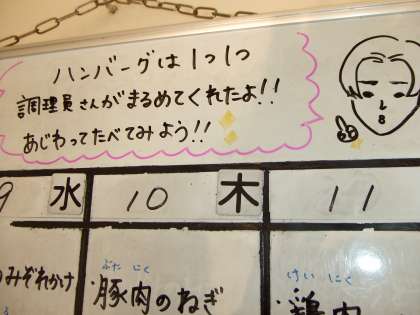 ハンバーグは1つ1つ
調理員さんがまるめてくれたよ!!
あじわってたべてみよう!!
9 水 10 木 11
のみぞれかけ
ぶた にく
・豚肉のねぎ
けい にく
・鶏肉